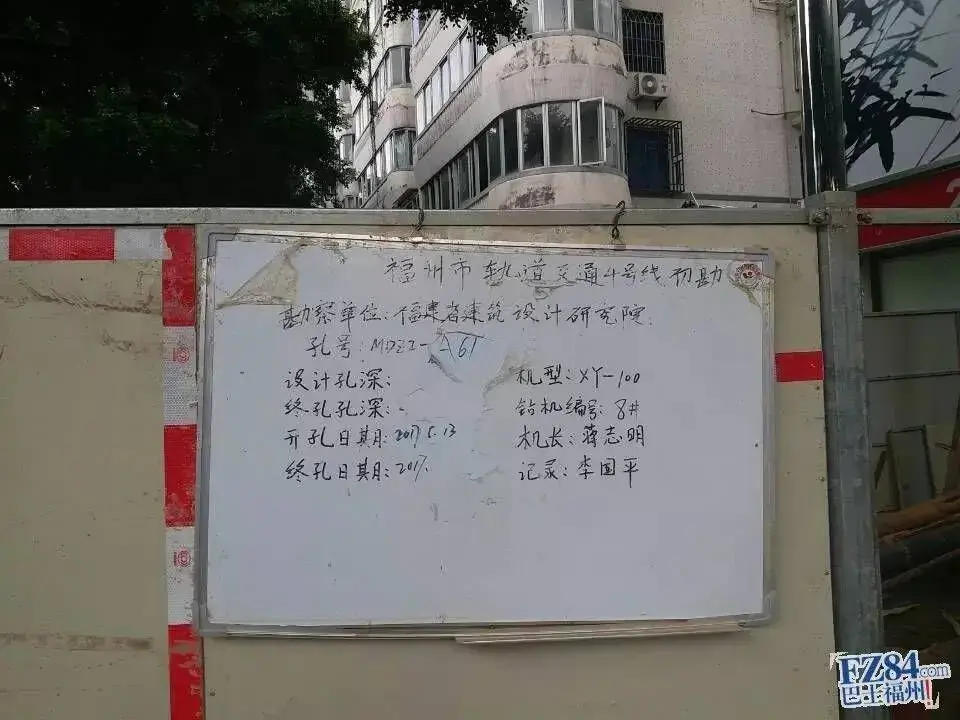 福州市轨道交通4号线初勘
勘察单位:福建省建筑设计研究院.
孔号:MDZ2-A61
设计孔深:
机型:XY-100
终孔孔深:
钻机编号:8#
开孔日期:2017.5.13
机长:蒋志明
终孔日期:2017.
记录:李国平
FZ84.com
巴士福州